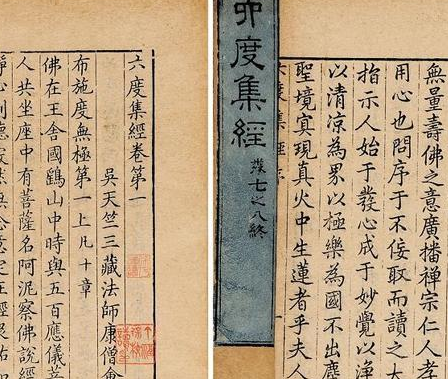 六度集經卷第一
吳天竺三藏法師康僧會
布施度無極第一上凡十章
佛在王舍國鷂山中時與五百應儀菩
人共坐座中有菩薩名阿泥察佛說經
六度集經
七之八終
無量壽佛之意廣播禪宗仁人孝
用心也問序于不佞取而讀之大
指示人始于發心成于妙覺以淨
以清凉為界以極樂為國不出塵
聖境寘現真火中生蓮者乎夫人
六度集經序